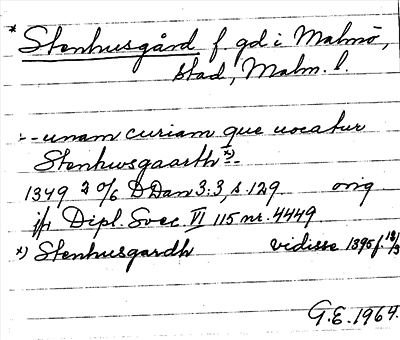 * Stenhusgård f. gd i Malmö,
stad, Malm. l.
:- - unam curiam que uocatur
Stenhwsgaarth x) -
1349 2 0/6 DDan 3:3, s. 129 orig
jfr Dipl. Svec. VI 115 nr. 4449
x) Stenhusgardh vidisse 1395 f. 18/3
G.E. 1964.